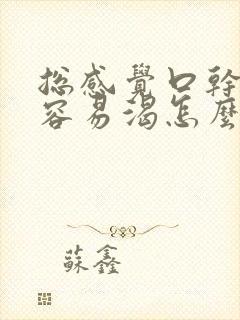 总感覺口幹
容易渴怎麼
蘇鑫